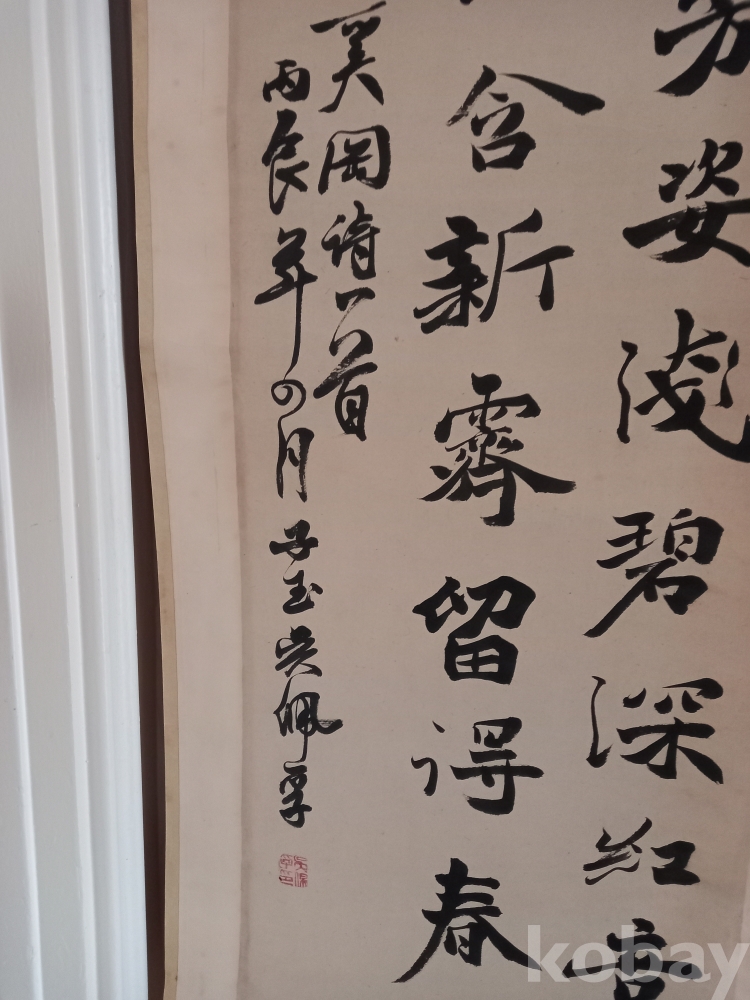 芳姿淺碧深紅
含新霽留得春
岡詩一首
丙辰年四月 子玉吳佩孚
kobay